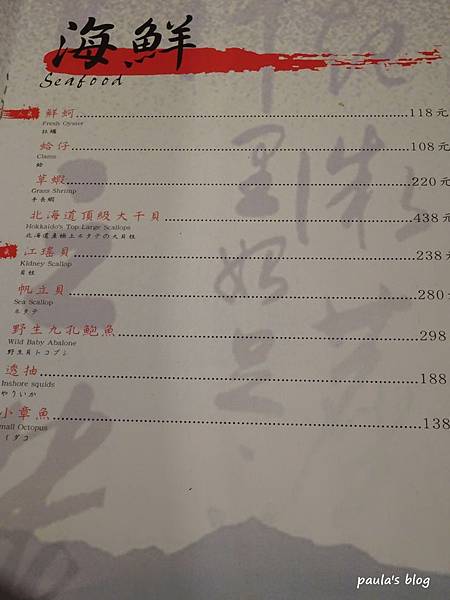 海鮮
Seafood
鮮蚵 118元
Fresh Oyster
牡蠣
蛤仔 108元
Clams
蛤
草蝦 220元
Grass Shrimp
手長蝦
北海道頂級大干貝 438元
Hokkaido's Top Large Scallops
北海道産極上ホタテの大貝柱
江瑤貝 238元
Kidney Scallop
貝柱
帆立貝 280元
Sea Scallop
ホタテ
野生九孔鮑魚 298
Wild Baby Abalone
野生貝トコブシ
透抽 188
Inshore squids
やりいか
小章魚 138
mall Octopus
イダコ
paula's blog